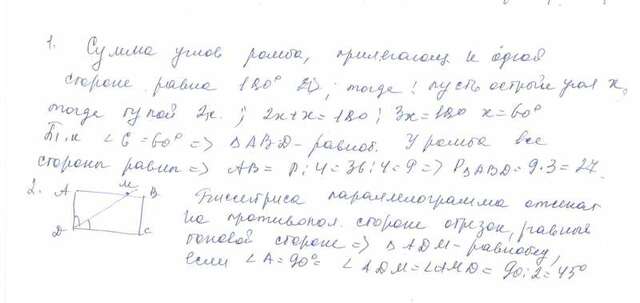 1. Сумма углов ромба, прилегающ к одной
стороне равна 180° ; тогда: пусть острый угол x,
тогда тупой 2x. ; 2x+x=180; 3x=180 x=60°
Т.к ∠C=60° => △ABD-равноб. У ромба все
стороны равны => AB= P:4=36:4=9 => P△ABD=9·3=27.
2. A M B
D C
Биссектриса параллелограмма отсекает
на противопол. стороне отрезок, равный
боковой стороне => △ADM-равнобед,
если ∠A=90° ∠ADM=∠AMD=90:2=45°